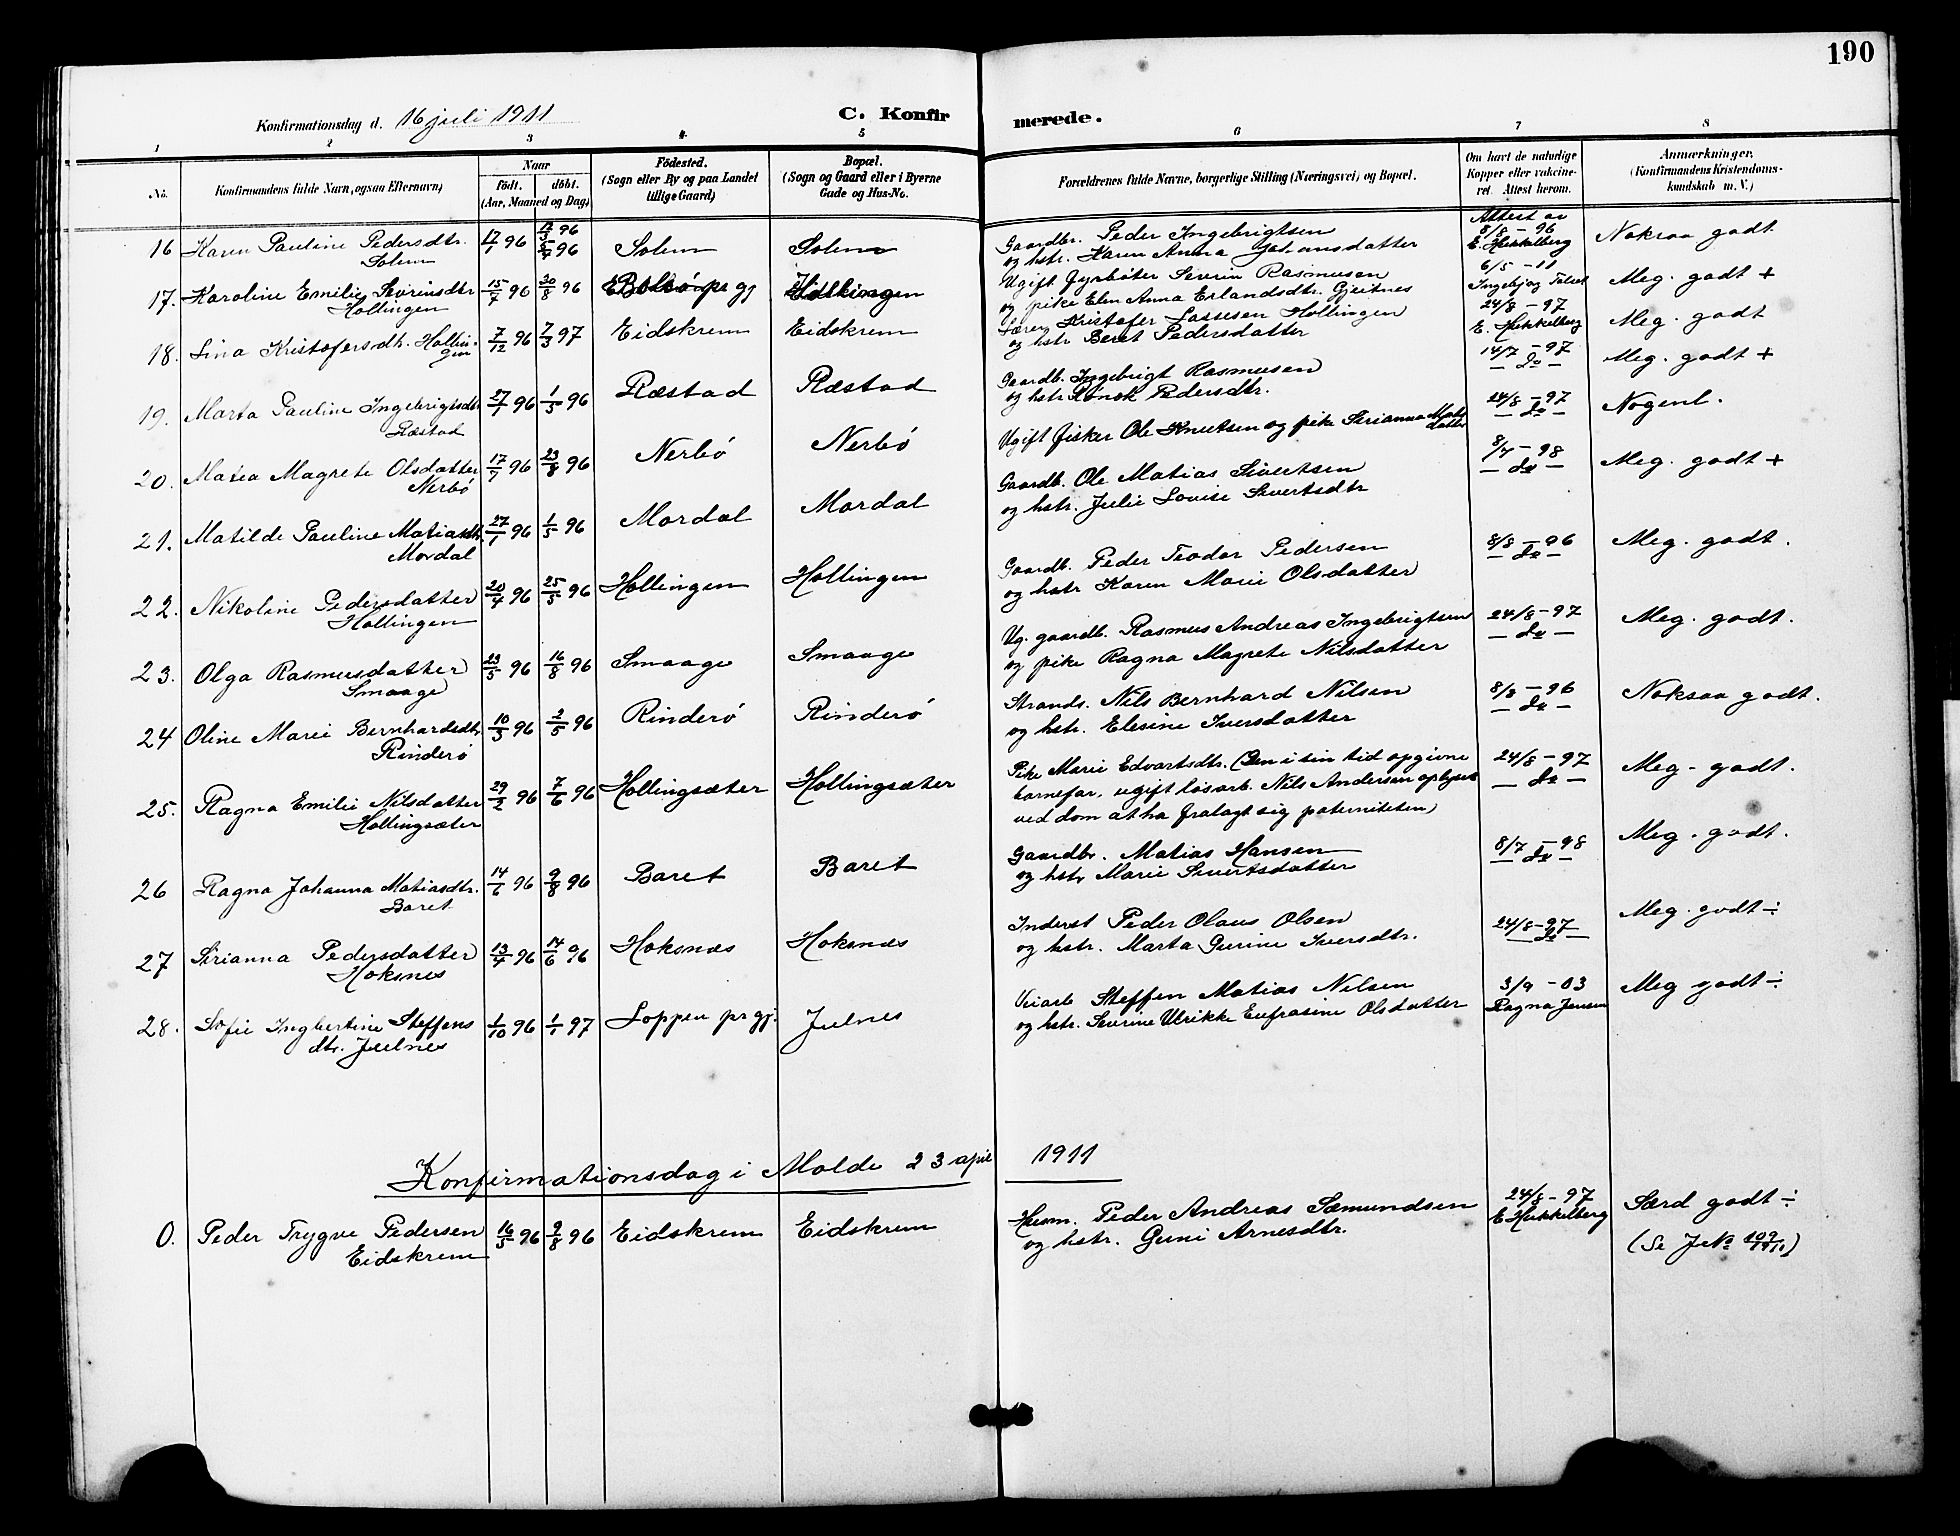 190
Konfirmationsdag d. 16 juli 1911
C. Konfirmerede.
1 2 3 4 5 6 7 8
No.
Konfirmandens fulde Navn, ogsaa Efternavn)
Naar
födt. döbt.
(Aar, Maaned og Dag)
Födested.
(Sogn eller By og paa Landet
tillige Gaard)
Bopæl.
(Sogn og Gaard eller i Byerne
Gade og Hus-No.
Forældrenes fulde Navne, borgerlige Stilling (Næringsvei) og Bopæl.
Om havt de naturlige
Kopper eller vakcine-
ret. Attest herom.
Anmærkninger.
(Konfirmandens Kristendoms-
kundskab m. V.)
16 Karen Pauline Pedersdtr. Solem 17/1 96 Solem Solem
Gaardbr. Peder Ingebrigtsen
og hstr. Karen Anna Johansdatter
Attest av 8/8 - 96 E. Heikkelberg Noksaa godt
17. Karoline Emilie Sevrinsdtr Hollingen 15/7 96 30/8 96
Ugift fyrbøter Severin Rasmusen
og pike Elen Anna Erlandsdtr. Gjeitnes
6/5 - 11 Meg. godt +
18. Lina Kristofersdtr. Hollingen 7/12 96 7/3 97 Eidskrem Eidskrem
Kristofer Lassesen Hollingen
og hstr Beret Pedersdatter
24/8 - 97 E. Heikkelberg Meg. godt
19. Marta Pauline Ingebrigtsdtr Ræstad 27/1 96 1/5 96 Ræstad Ræstad
Gaardb. Ingebrigt Rasmusen
og hstr Rønok Pedersdtr.
14/7 - 97 — do — Meg. godt +
20. Matea Magrete Olsdatter Nerbö 17/7 96 23/8 96 Nerbö Nerbö
Ugift fisker Ole Knutsen og pike Sirianna Matsdatter
24/8 - 97 — do — Nogenl.
21. Matilde Pauline Matiasdtr Mordal 27/1 96 1/5 96 Mordal Mordal
Gaardb. Ole Matias Sivertsen
og hstr. Julie Lovise Sivertsdtr
8/7 - 98 — do — Meg. godt +
22. Nikoline Pedersdatter Hollingen 20/4 96 25/5 96 Hollingen Hollingen
Gaardb. Peder Teodor Pedersen
og hstr Karen Marie Olsdatter
8/8 - 96 — do — Meg. godt.
23. Olga Rasmusdatter Smaage 23/5 96 16/8 96 Smaage Smaage
Ug. gaardb. Rasmus Andreas Ingebrigtsen
og pike Ragna Magrete Nilsdatter
24/8 - 97 — do — Meg. godt.
24 Oline Marie Bernhardsdtr. Rinderö 10/3 96 2/5 96 Rinderö Rinderö
Strands. Nils Bernhard Nilsen
og hstr. Elesine Iversdatter
8/8 - 96 — do — Noksaa godt.
25. Ragna Emilie Nilsdatter Hollingsæter 29/2 96 7/6 96 Hollingsæter Hollingsæter
Pike Marie Edvartsdtr. (Den i sin tid opgivne
barnefar, ugift løsarb. Nils Andersen oplyses
ved dom at ha fralagt sig paterniteten)
24/8 - 97 — do — Meg. godt.
26 Ragna Johanna Matiasdtr. Baret 14/6 96 9/8 96 Baret Baret
Gaardbr. Matias Hansen
og hstr Marie Sivertsdatter
8/7 - 98 — do — Meg. godt.
27 Sirianna Pedersdatter Hoksnes 13/4 96 14/6 96 Hoksnæs Hoksnæs
Inderst Peder Olaus Olsen
og hstr. Marta Gurine Iversdtr.
24/8 - 97 — do — Meg. godt ÷
28. Sofie Ingbertine Steffens dtr. Julnes 1/10 96 1/1 97 Loppen pr gj. Julnes
Veiarb Steffen Matias Nilsen
og hstr. Severine Ulrikke Eufrasine Olsdatter
3/9 - 03 Ragna Jensen Meg godt ÷
Konfirmationsdag i Molde 23 april 1911
0. Peder Trygve Pedersen Eidskrem 16/5 96 9/8 96 Eidskrem Eidskrem
Husm. Peder Andreas Sæmundsen
og hstr. Guni Arnesdtr.
24/8 - 97 E Heikkelberg Særd godt ÷
(Se J No 109/1910)